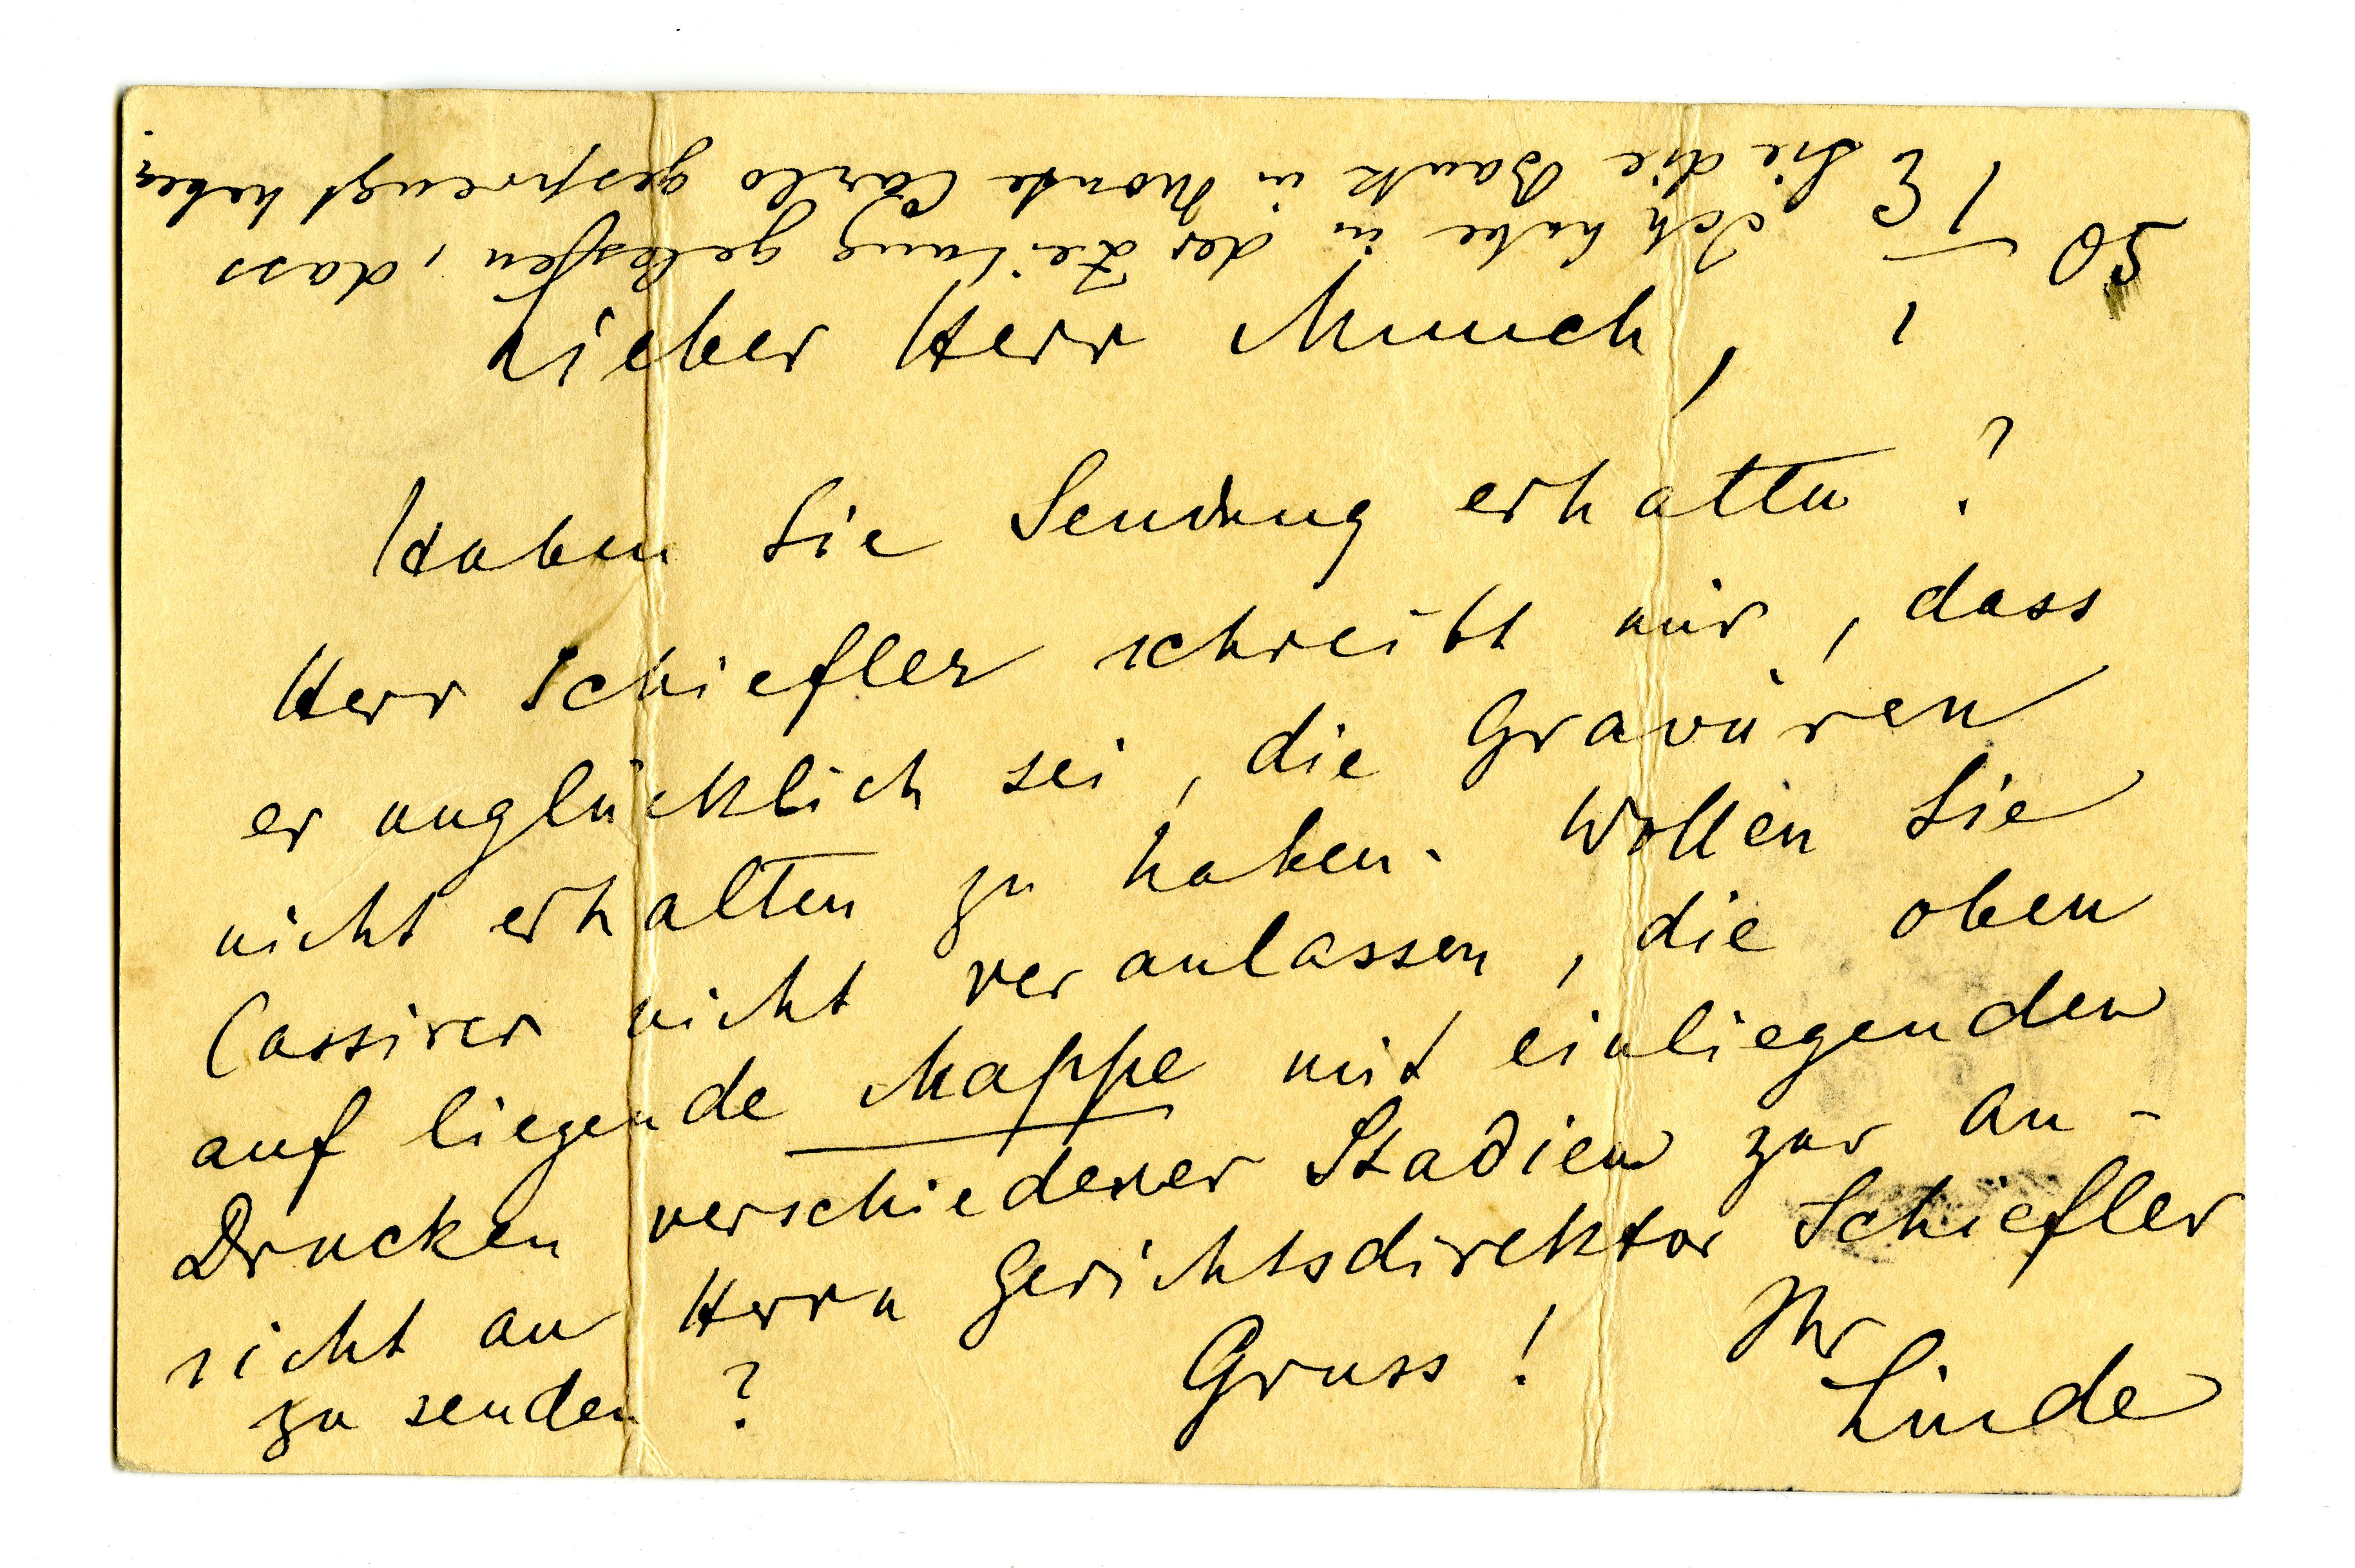 Lieber Herr Munch,
Haben Sie Sendung erhalten?
Herr Schiefler schreibt mir, dass
er unglücklich sei, die Gravüren
nicht erhalten zu haben. Wollen Sie
Cassirer nicht veranlassen, die oben
auf liegende Mappe mit einliegenden
Drucken verschiedener Stadien zur An-
sicht an Herrn Gerichtsdirektor Schiefler
zu senden? Gruss! Ihr
Linde
Ich habe in der Zeitung gelessen, dass
Sie die Bank in Monte Carlo gesprengt haben.